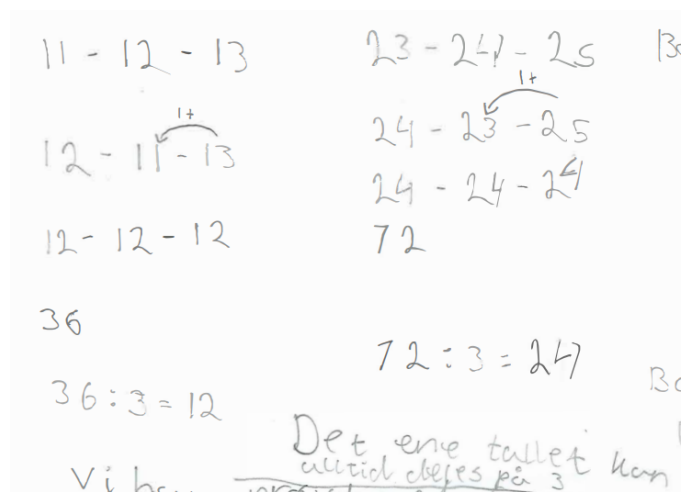 11 - 12 - 13
1+
12 - 11 - 13
12 - 12 - 12
36
36 : 3 = 12
23 - 24 - 25
1+
24 - 23 - 25
24 - 24 - 24
72
72 : 3 = 24
Det ene tallet kan
alltid deles på 3
Vi